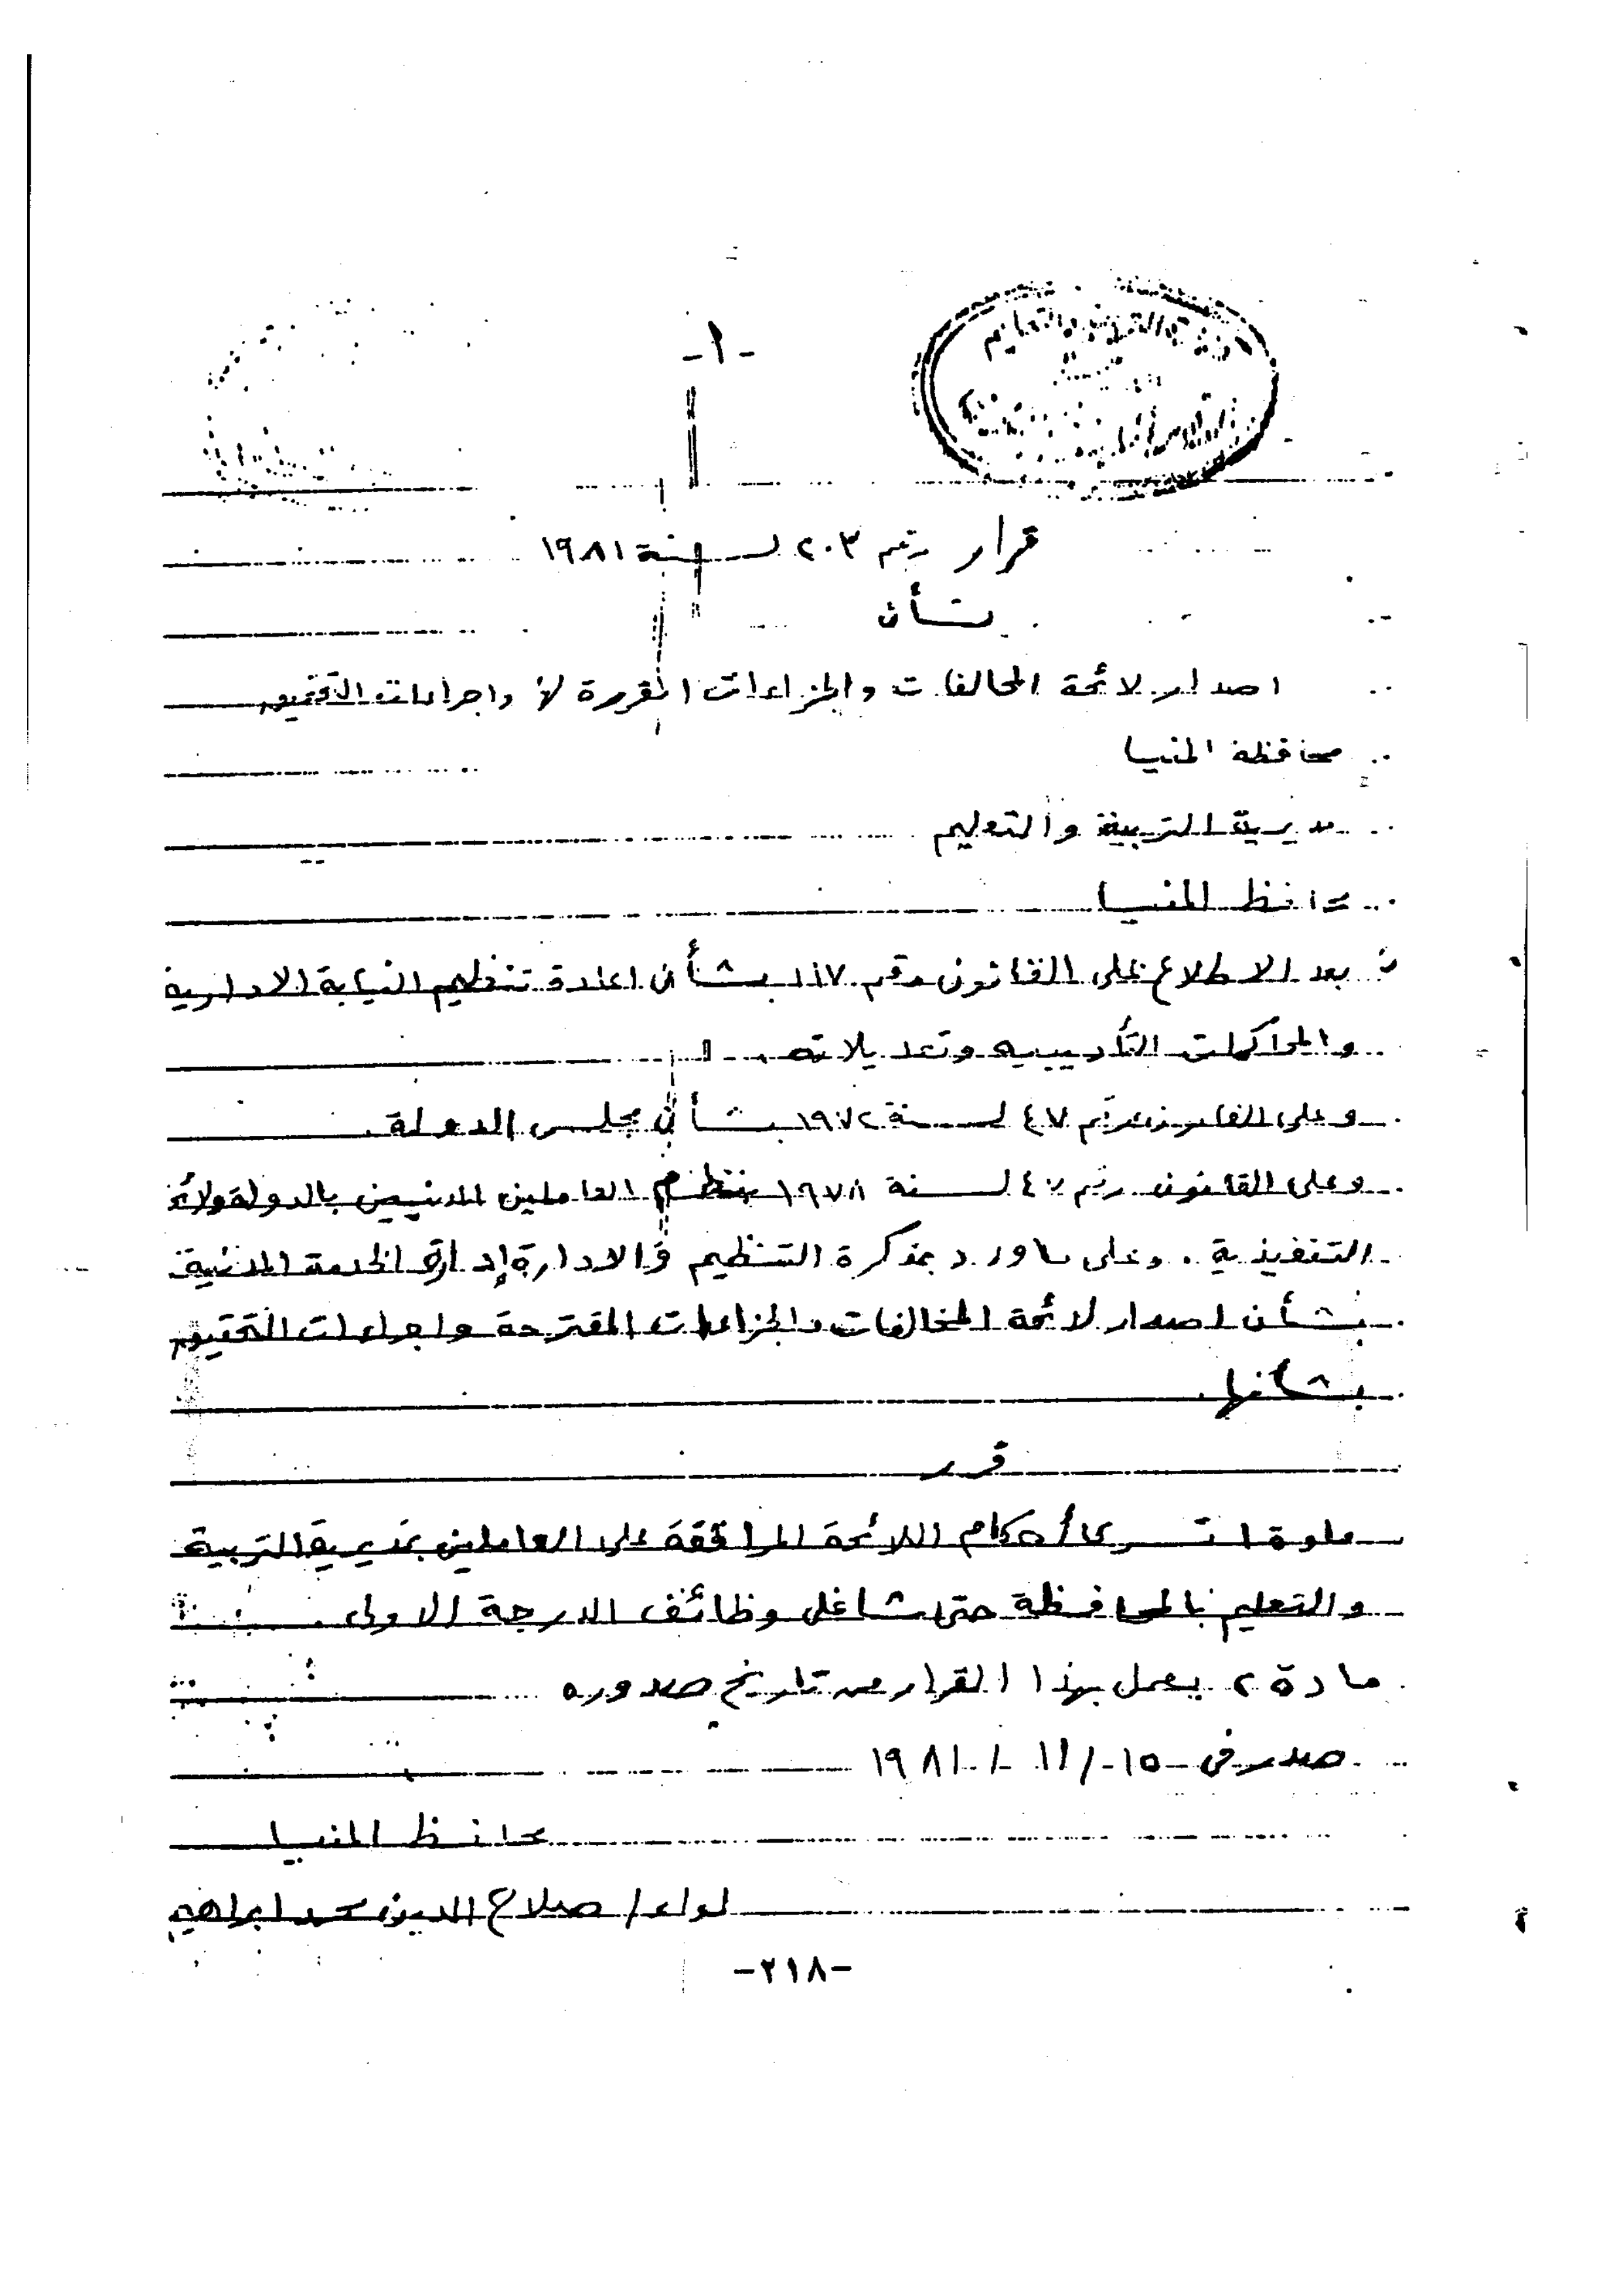 -١-
قرار رقم ٢٠٣ لسنة ١٩٨١
بشأن
اصدار لائحة المخالفات والجزاءات المقررة لها واجراءات التحقيق
محافظة المنيا
مديرية التربية والتعليم
محافظ المنيا
بعد الاطلاع على القانون رقم ١١٧ بشأن اعادة تنظيم النيابة الادارية
والمحاكمات التأديبيه وتعديلاته.
وعلى القانون رقم ٤٧ لسنة ١٩٧٢ بشأن مجلس الدولة.
وعلى القانون رقم ٤٧ لسنة ١٩٧٨ بتنظيم العاملين المدنيين بالدولة
التنفيذية . وعلى ماورد بمذكرة التنظيم والادارة إدارة الخدمة المدنية
بشأن اصدار لائحة المخالفات والجزاءات المقترحة واجراءات التحقيق
بشأنها.
قرر
مادة ١ تسرى أحكام اللائحة المرافقة على العاملين بمديرية التربية
والتعليم بالمحافظة حتى شاغلى وظائف الدرجة الاولى .
مادة ٢ يعمل بهذا القرار من تاريخ صدوره
صدر فى ١٥ / ١١ / ١٩٨١
محافظ المنيا
لواء / صلاح الدين محمد ابراهيم
-٢١٨-